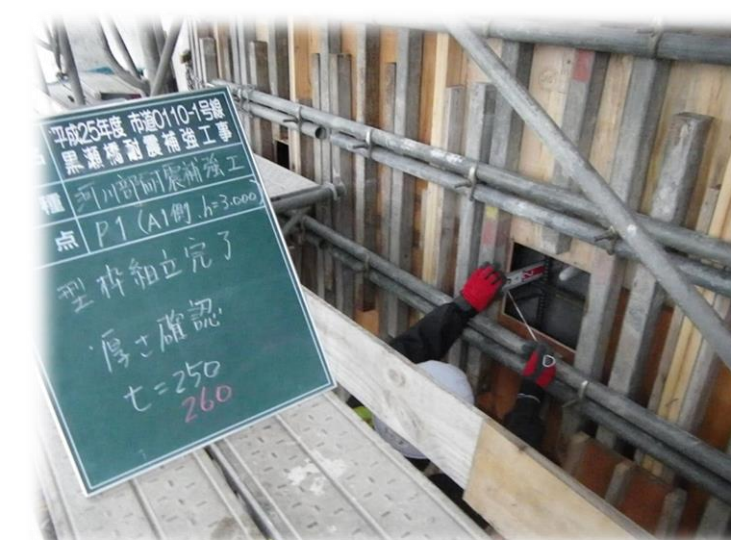 平成25年度 市道0110-1号線
黒瀬橋耐震補強工事
種 河川部耐震補強工
点 P1 (A1側 h=3.000)
型枠組立完了
厚さ確認
t=250
260